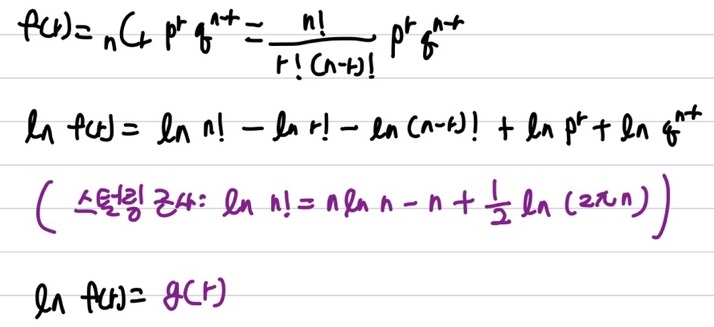 f(r) = nCr p^r q^(n-r) = n! / r!(n-r)! p^r q^(n-r)
ln f(r) = ln n! - ln r! - ln (n-r)! + ln p^r + ln q^(n-r)
( 스털링 근사: ln n! = n ln n - n + 1/2 ln (2πn) )
ln f(r) = g(r)